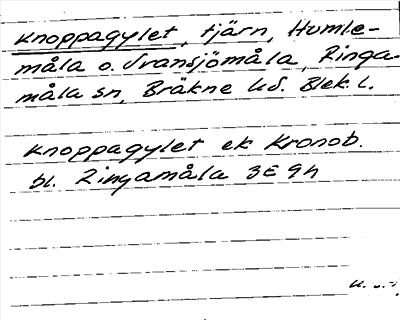 Knoppagylet, tjärn, Humle-
måla o. Transjömåla, Ringa-
måla sn, Bräkne hd. Blek. l.
Knoppagylet ek Kronob.
bl. Ringamåla 3E9h